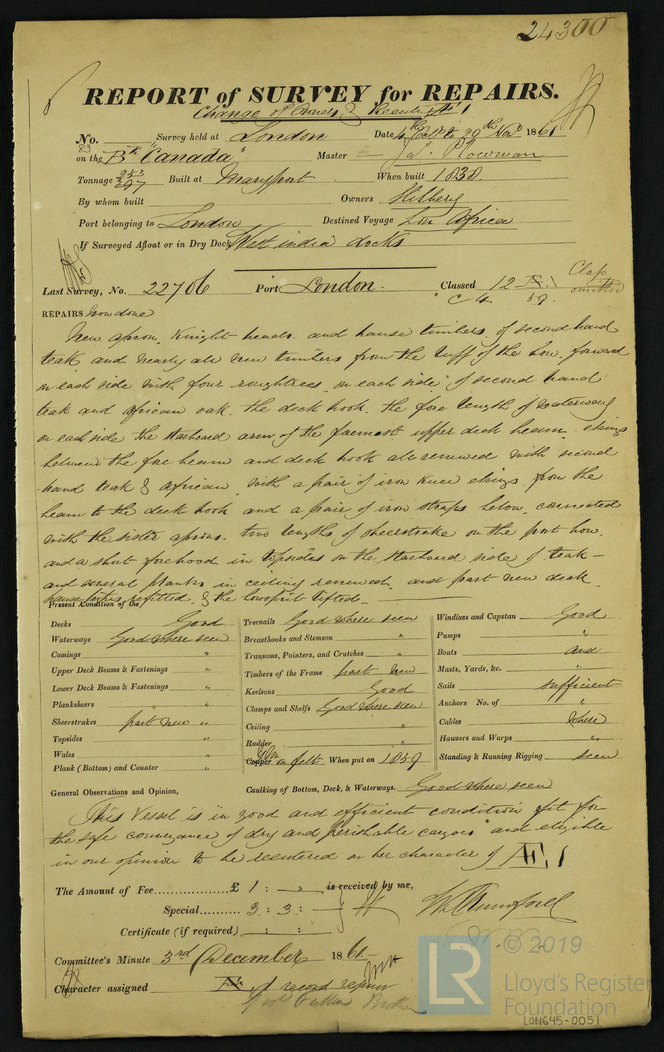 24300
REPORT of SURVEY for REPAIRS.
Change of Owners &
No. 83 Survey held at London Date 4th Octr to 29th Novr 1861
on the Bk "Canada" Master Plowman
Tonnage 297 Built at Maryport When built 1838.
By whom built Owners Hilbery
Port belonging to London Destined Voyage Africa
If Surveyed Afloat or in Dry Dock West india docks
Last Survey, No. 22706 Port London. Classed 12 Æ.1 Class omitted
C 4. 59.
REPAIRS now done
New apron, Knight heads. and hause timbers of second hand
teak and nearly all new timbers from the luff of the bow. forward
on each side with four roughtrees on each side of second hand
teak and african oak. the deck hook. the fore length of waterway
on each side the starboard arm of the foremost upper deck beam. ekings
between the fore beam and deck hook all renewed with second
hand teak & African with a pair of iron knee ekings from the
beam to the deck hook and a pair of iron straps below. connected
with the sister aprons. two lengths of sheerstrake on the port bow
and a short forehood in topsides on the starboard side of teak -
and several planks in ceiling renewed. and part new deck.
refitted. & the bowsprit lifted -
Present Condition of the
Decks Good
Waterways Good where seen
Comings "
Upper Deck Beams & Fastenings "
Lower Deck Beams & Fastenings "
Planksheers "
Sheerstrakes part new "
Topsides "
Wales "
Plank (Bottom) and Counter "
Treenails Good where seen
Breasthooks and Stemson "
Transoms, Pointers, and Crutches "
Timbers of the Frame part new
Keelsons Good
Clamps and Shelfs Good where seen
Ceiling "
Rudder "
Copper YM on felt When put on 1859
Caulking of Bottom, Deck, & Waterways. Good where seen
Windlass and Capstan Good
Pumps "
Boats and
Masts, Yards, &c. "
Sails sufficient
Anchors No. of "
Cables where
Hawsers and Warps "
Standing & Running Rigging seen
General Observations and Opinion,
This Vessel is in good and efficient condition fit for
the safe conveyance of dry and perishable cargoes and eligible
in our opinion to be reentered on her character of Æ 1
The Amount of Fee £ 1 : - is received by me,
Special 3 : 3 : -
Certificate (if required) : :
Committee's Minute 3rd December 1861.
Character assigned Æ 1 record repairs
© 2019
LR
Lloyd's Register
Foundation
LON645-0051